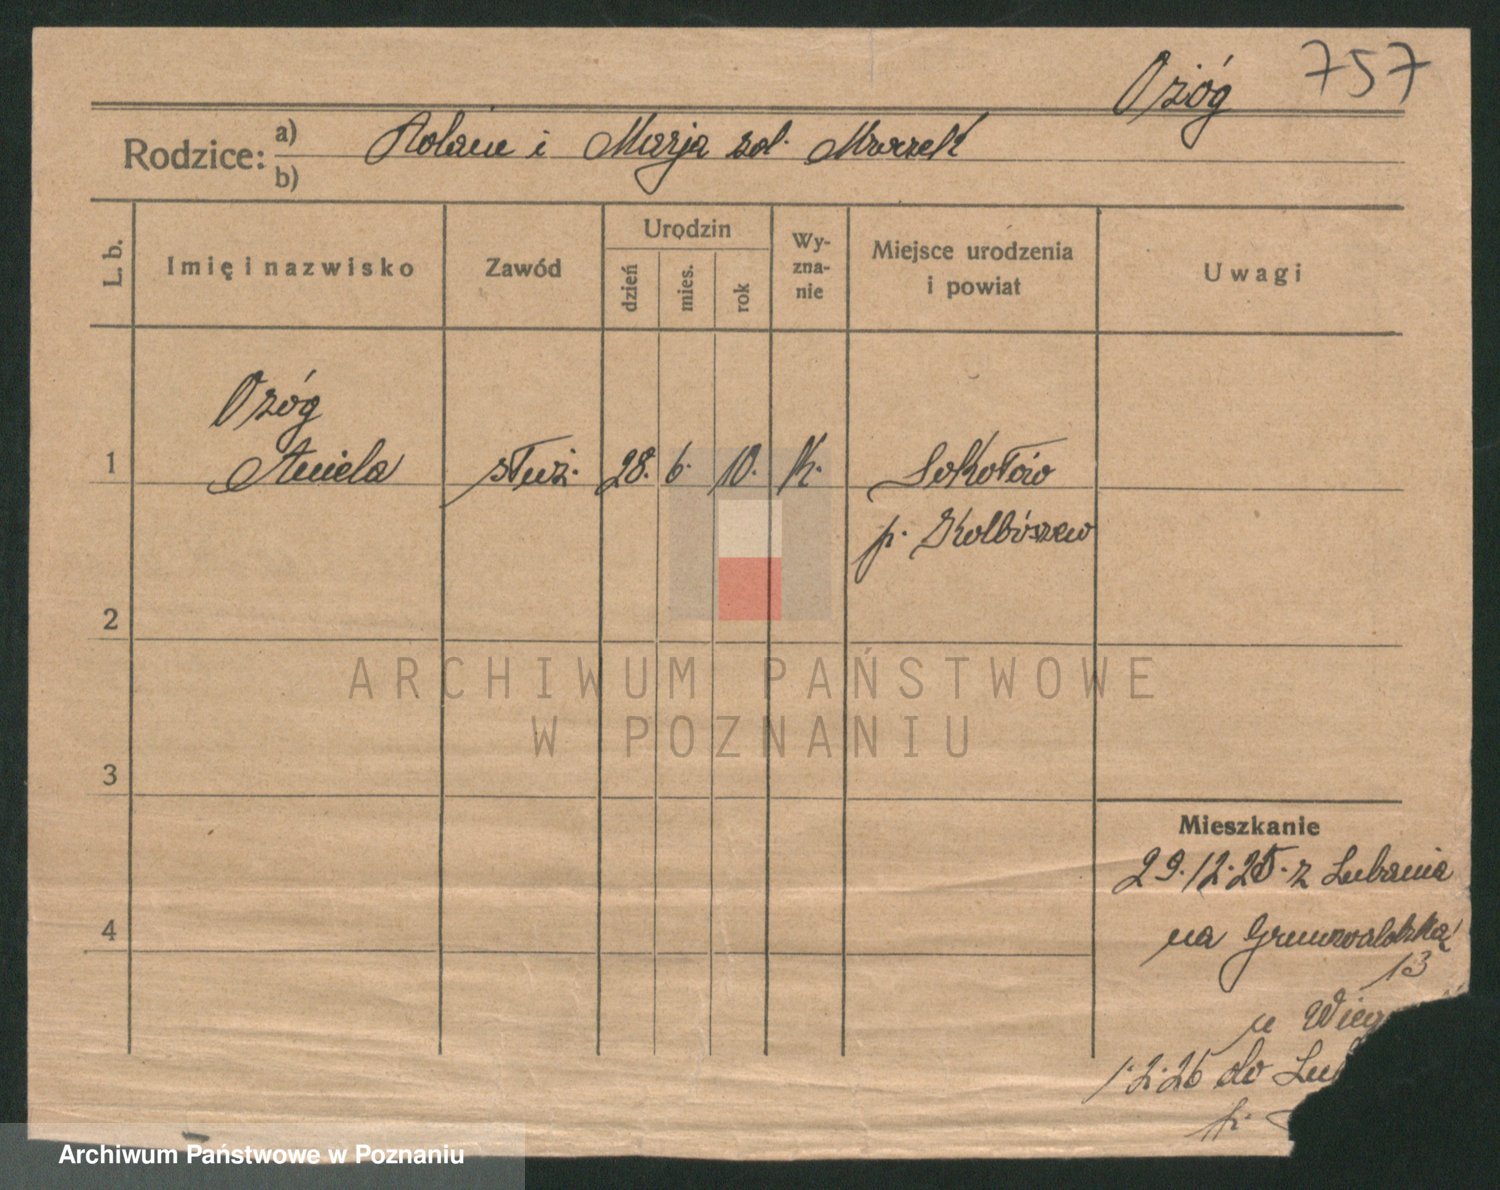 Ożóg 757
Rodzice: a) b) i Marja zd. Mrozek
L. b. Imię i nazwisko Zawód Urodzin dzień mies. rok Wy-zna-nie Miejsce urodzenia i powiat Uwagi
Ożóg
1 Aniela służ. 28. 6. 10. K. Sokołów
p. Kolbószew
2
ARCHIWUM PAŃSTWOWE
W POZNANIU
3
Mieszkanie
29.12.25. z Lubania
4
na Grunwaldzką
13
u
1.2.26 do
p.
Archiwum Państwowe w Poznaniu